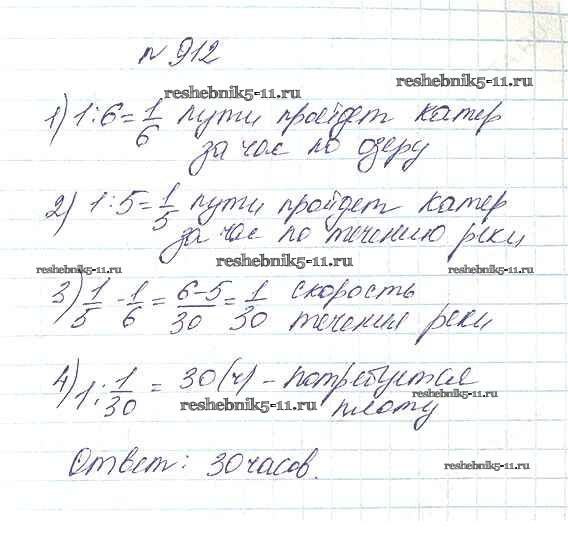 № 912
reshebnik5-11.ru
1) 1:6=1/6 пути пройдет катер
за час по озеру
2) 1:5=1/5 пути пройдет катер
за час по течению реки
reshebnik5-11.ru
reshebnik5-11.ru reshebnik5-11.ru
3) 1/5 - 1/6 = (6-5)/30 = 1/30 скорость
течения реки
4) 1:1/30 = 30 (ч) – потребуется
reshebnik5-11.ru
reshebnik5-11.ru плоту
Ответ: 30 часов.
reshebnik5-11.ru